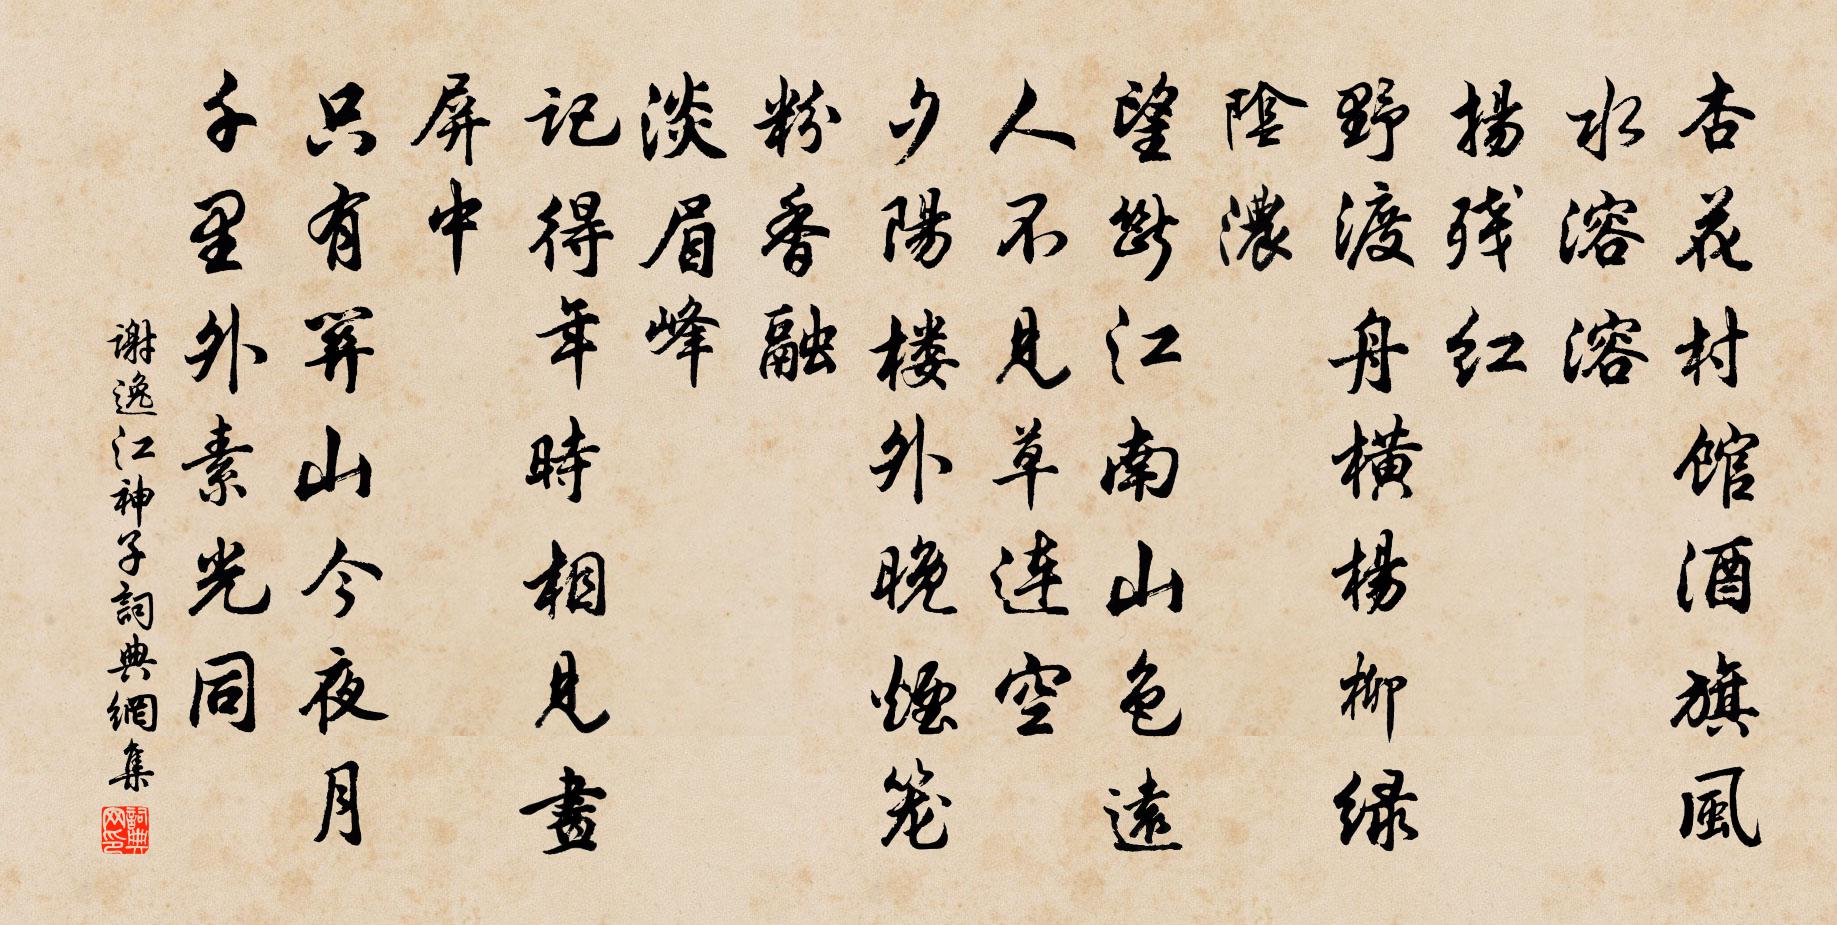 杏花村馆酒旗風
水溶溶
揚残红
野渡舟横楊柳绿
陰濃
望斷江南山色遠
人不見草连空
夕陽楼外晚煙笼
粉香融
淡眉峰
记得年時相見畫
屏中
只有関山今夜月
千里外素光同
谢逸江神子詞典網集
詞典网印